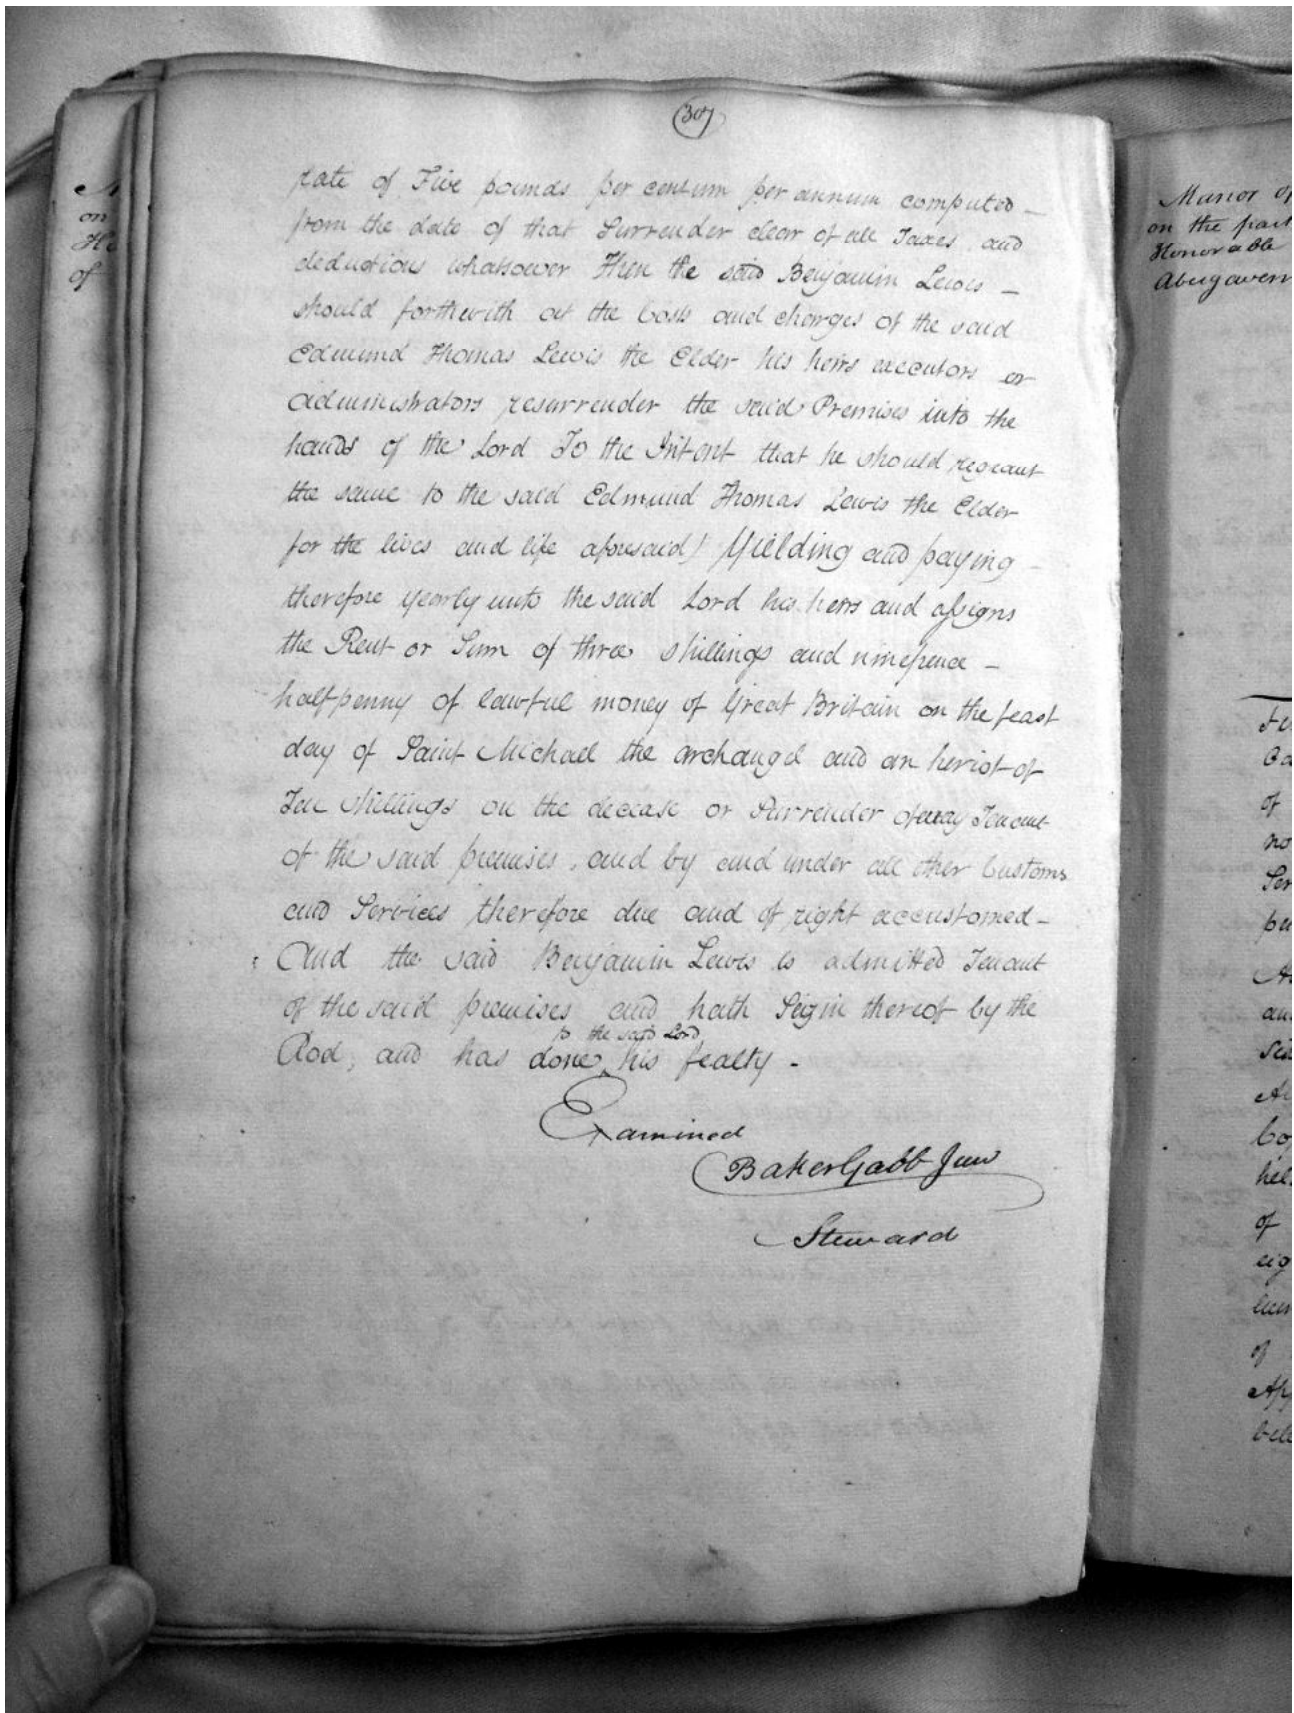 307
rate of Five pounds per centum per annum computed –
from the date of that Surrender clear of all Taxes and
deductions whatsoever Then the said Benjamin Lewis –
should forthwith at the Costs and charges of the said
Edmund Thomas Lewis the Elder his heirs executors or
administrators resurrender the said Premises into the
hands of the Lord To the Intent that he should regrant
the same to the said Edmund Thomas Lewis the Elder
for the lives and life aforesaid) Yielding and paying –
therefore yearly unto the said Lord his heirs and assigns
the Rent or Sum of three shillings and ninepence –
halfpenny of lawful money of Great Britain on the feast
day of Saint Michael the archangel and an heriot of
Ten shillings on the decease or Surrender of Tenant
of the said premises, and by and under all other Customs
and Services therefore due and of right accustomed –
And the said Benjamin Lewis is admitted Tenant
of the said premises and hath Seizin thereof by the
to the said Lord
Rod, and has done his fealty –
Examined
Baker Gabb Jun
Steward
Manor of
on the part
Honorable
Abergavenn
on
of
of
no
of
of